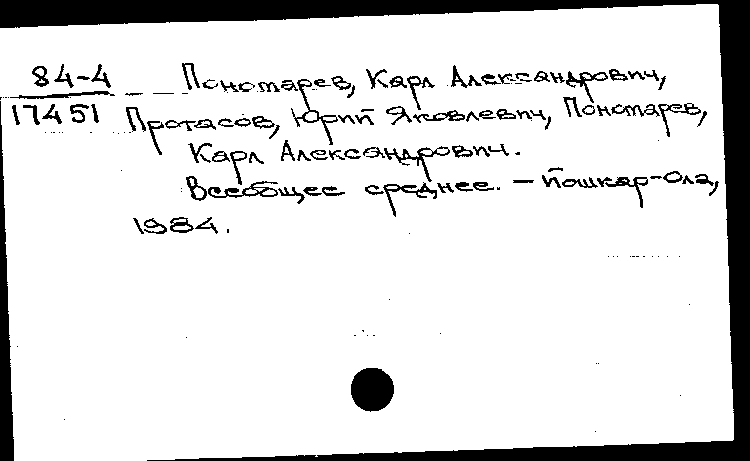 84-4 Пономарев, Карл Александрович,
17451 Протасов, Юрий Яковлевич, Пономарев,
Карл Александрович.
Всеобщее среднее. – Йошкар-Ола,
1984.